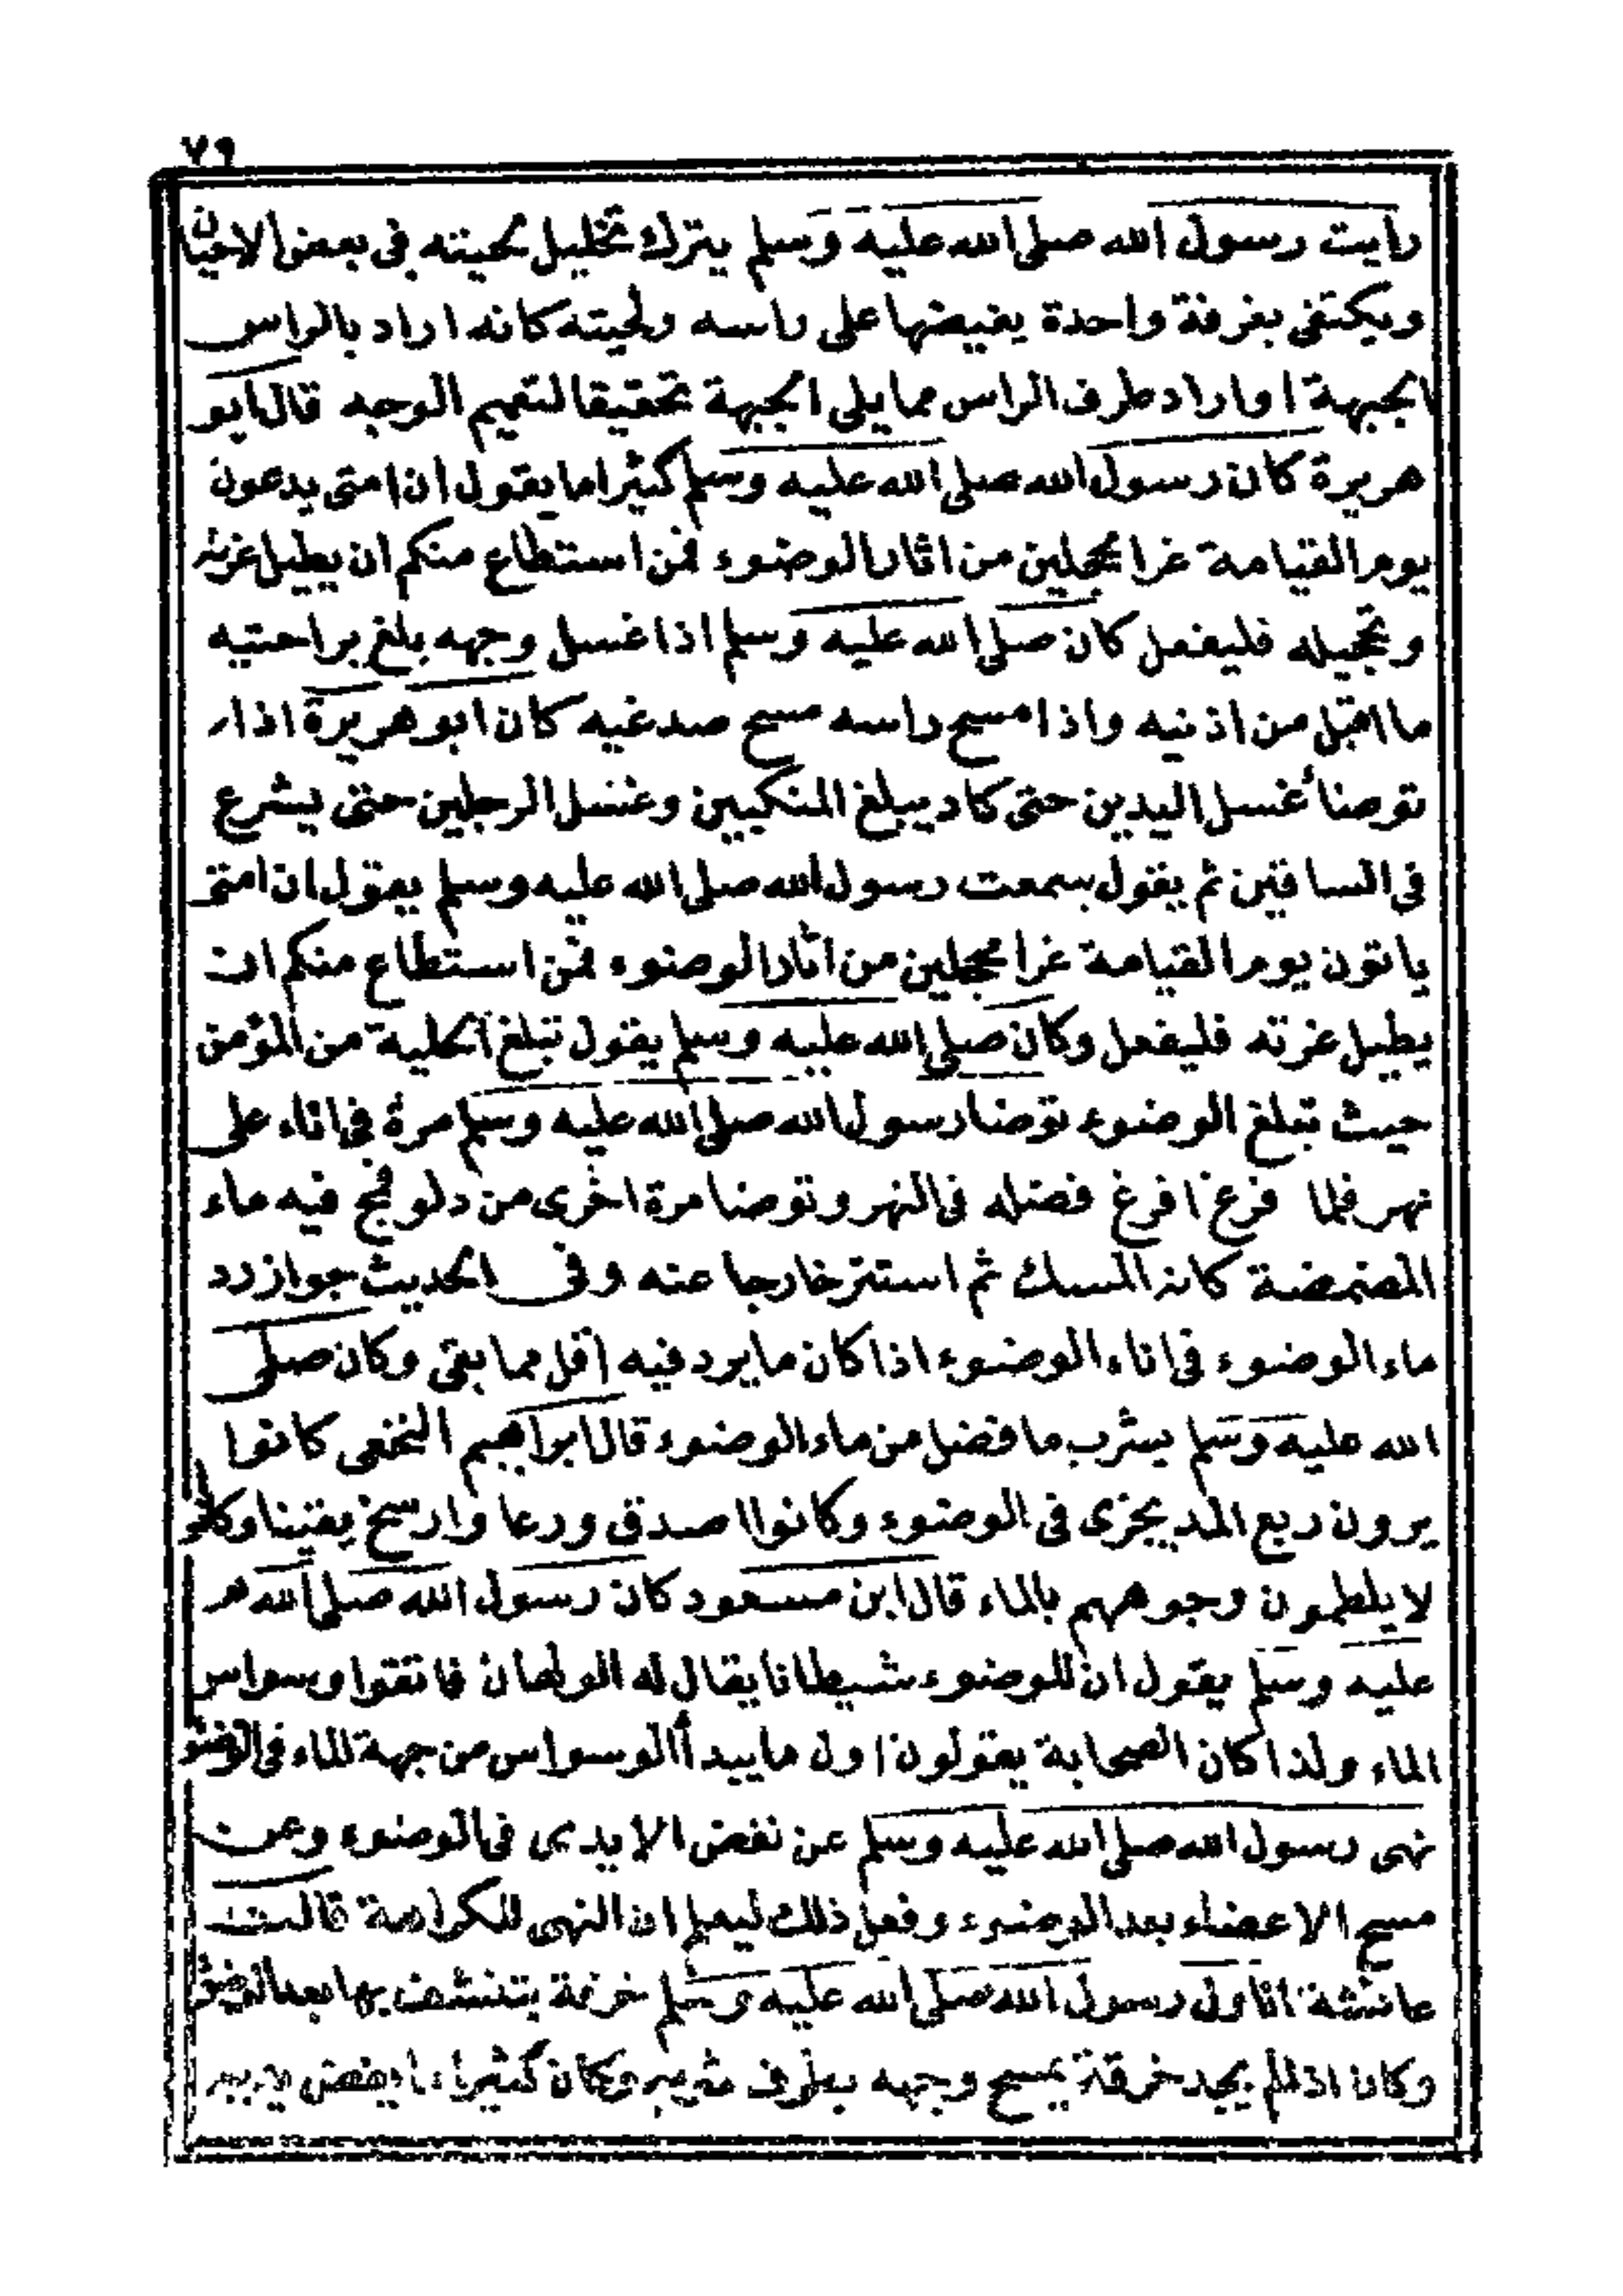 ٧٩
رايت رسول الله صلى الله عليه وسلم يترك تخليل لحيته فى بعض الاحيان
ويكتفى بغرفة واحدة يفيضها على راسه ولحيته كانه اراد بالراس
الجبهة او اراد طرف الراس مما يلى الجبهة تحقيقا لتعميم الوجه قال ابو
هريرة كان رسول الله صلى الله عليه وسلم كثيرا ما يقول ان امتى يدعون
يوم القيامة غرا محجلين من اثار الوضوء فمن استطاع منكم ان يطيل غرته
وتحجيله فليفعل كان صلى الله عليه وسلم اذا غسل وجهه بلغ براحتيه
ما اقبل من اذنيه واذا مسح راسه مسح صدغيه كان ابو هريرة اذا
توضأ غسل اليدين حتى كاد يبلغ المنكبين وغسل الرجلين حتى يشرع
فى الساقين ثم يقول سمعت رسول الله صلى الله عليه وسلم يقول ان امتى
ياتون يوم القيامة غرا محجلين من اثار الوضوء فمن استطاع منكم ان
يطيل غرته فليفعل وكان صلى الله عليه وسلم يقول تبلغ الحلية من المؤمن
حيث تبلغ الوضوء توضا رسول الله صلى الله عليه وسلم مرة فى اناء على
نهر فلما فرغ افرغ فضله فى النهر وتوضا مرة اخرى من دلو فمج فيه ماء
المضمضة كانه المسك ثم استنثر خارجا عنه وفى الحديث جواز رد
ماء الوضوء فى اناء الوضوء اذا كان ما يرد فيه اقل مما بقى وكان صلى
الله عليه وسلم يشرب ما فضل من ماء الوضوء قال ابراهيم النخعى كانوا
يرون ربع المد يجزى فى الوضوء وكانوا اصدق ورعا وارسخ يقينا وكانوا
لا يلطمون وجوههم بالماء قال ابن مسعود كان رسول الله صلى الله
عليه وسلم يقول ان للوضوء شيطانا يقال له الولهان فاتقوا وسواس
الماء ولذا كان الصحابة يقولون اول ما يبدأ الوسواس من جهة الماء فى الوضوء
نهى رسول الله صلى الله عليه وسلم عن نفض الايدى فى الوضوء وعن
مسح الاعضاء بعد الوضوء وفعل ذلك ليعلم ان النهى للكراهة قالت
عائشة اناول رسول الله صلى الله عليه وسلم خرقة يتنشف بها بعد الوضوء
وكان اذا لم يجد خرقة يمسح وجهه بطرف ثوبه وكان كثيرا ما ينفض يديه